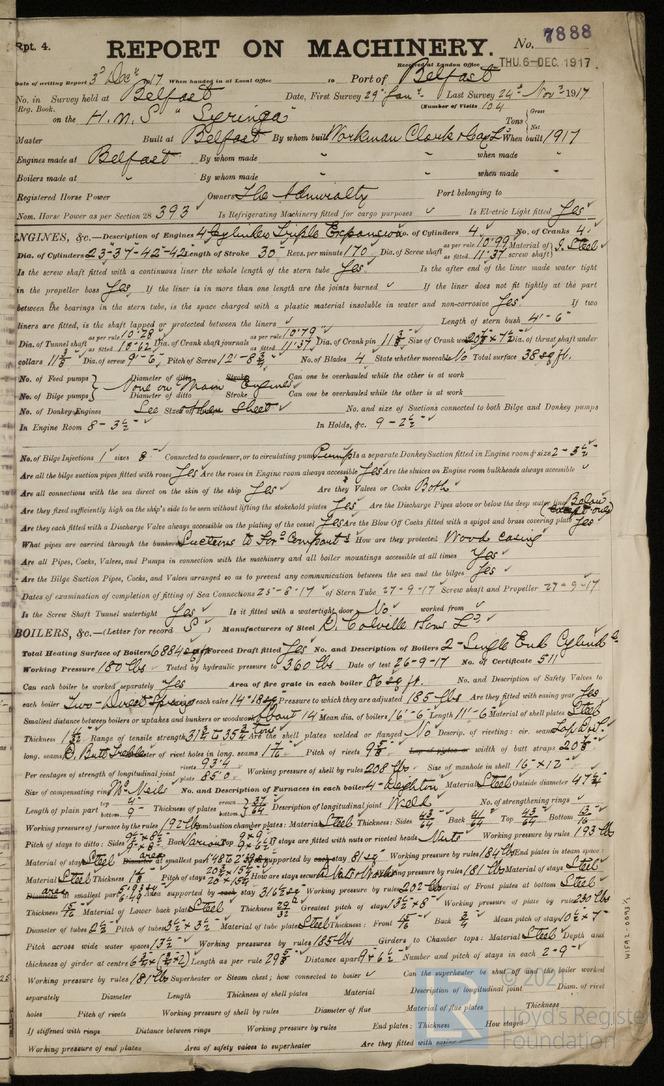 Rpt. 4.
REPORT ON MACHINERY.
No. 7888
Received at London Office THU. 6-DEC. 1917
Date of writing Report 3rd Decr 17 When handed in at Local Office 10 Port of Belfast
No. in Survey held at Belfast Date, First Survey 29 Jany Last Survey 24th Novr 1917
Reg. Book. (Number of Visits 104
on the H.M.S. "Syringa" Tons { Gross Net
Master Built at Belfast By whom built Workman Clark & Co Ld When built 1917
Engines made at Belfast By whom made " " when made "
Boilers made at " By whom made " " when made "
Registered Horse Power Owners The Admiralty Port belonging to
Nom. Horse Power as per Section 28 393 Is Refrigerating Machinery fitted for cargo purposes Is Electric Light fitted Yes
ENGINES, &c.—Description of Engines 4 Cylinder Triple Expansion No. of Cylinders 4 No. of Cranks 4
Dia. of Cylinders 23-37-42-42 Length of Stroke 30" Revs. per minute 170 Dia. of Screw shaft as per rule 10.99 as fitted 11.37 Material of screw shaft S. Steel
Is the screw shaft fitted with a continuous liner the whole length of the stern tube Yes Is the after end of the liner made water tight
in the propeller boss Yes If the liner is in more than one length are the joints burned If the liner does not fit tightly at the part
between the bearings in the stern tube, is the space charged with a plastic material insoluble in water and non-corrosive Yes If two
liners are fitted, is the shaft lapped or protected between the liners Length of stern bush 4'-6"
Dia. of Tunnel shaft as per rule 10.28 as fitted Dia. of Crank shaft journals as per rule 10.79 as fitted 11.37 Dia. of Crank pin 11 3/8 Size of Crank webs Dia. of thrust shaft under
collars 11 3/8 Dia. of screw 9'-6" Pitch of Screw 12'-8 3/4 No. of Blades 4 State whether moveable No Total surface 38 sq ft.
No. of Feed pumps Diameter of ditto Stroke Can one be overhauled while the other is at work
None on Main Engines
No. of Bilge pumps Diameter of ditto Stroke Can one be overhauled while the other is at work
No. of Donkey Engines See other sheet No. and size of Suctions connected to both Bilge and Donkey pumps
In Engine Room 8 - 3 1/2" In Holds, &c. 9 - 2 1/2"
No. of Bilge Injections 1 sizes 8" Connected to condenser, or to circulating pump Pump Is a separate Donkey Suction fitted in Engine room & size 2 - 3 1/2"
Are all the bilge suction pipes fitted with roses Yes Are the roses in Engine room always accessible Yes Are the sluices on Engine room bulkheads always accessible
Are all connections with the sea direct on the skin of the ship Yes Are they Valves or Cocks Both
Are they fixed sufficiently high on the ship's side to be seen without lifting the stokehold plates Yes Are the Discharge Pipes above or below the deep water line Below (except one)
Are they each fitted with a Discharge Valve always accessible on the plating of the vessel Yes Are the Blow Off Cocks fitted with a spigot and brass covering plate Yes
What pipes are carried through the bunkers Suctions to Ford Compartts How are they protected Wood casing
Are all Pipes, Cocks, Valves, and Pumps in connection with the machinery and all boiler mountings accessible at all times Yes
Are the Bilge Suction Pipes, Cocks, and Valves arranged so as to prevent any communication between the sea and the bilges Yes
Dates of examination of completion of fitting of Sea Connections 25-8-17 of Stern Tube 27-9-17 Screw shaft and Propeller 27-9-17
Is the Screw Shaft Tunnel watertight Yes Is it fitted with a watertight door No worked from
BOILERS, &c.—(Letter for record S) Manufacturers of Steel D. Colville & Sons Ld
Total Heating Surface of Boilers 6884 sq ft Forced Draft fitted Yes No. and Description of Boilers 2-Single End Cylindl
Working Pressure 180 lbs Tested by hydraulic pressure to 360 lbs Date of test 26-9-17 No. of Certificate 511
Can each boiler be worked separately Yes Area of fire grate in each boiler 86 sq ft. No. and Description of Safety Valves to
each boiler Two-Direct Spring each valve 14.18 sq Pressure to which they are adjusted 185 lbs Are they fitted with easing gear Yes
Smallest distance between boilers or uptakes and bunkers or woodwork about 14" Mean dia. of boilers 16'-6" Length 11'-6" Material of shell plates Steel
Thickness Range of tensile strength 31 1/2 to 35 1/2 tons shell plates welded or flanged No Descrip. of riveting: cir. seams Lap
long. seams D. Butt Treble of rivet holes in long. seams Pitch of rivets Lap of plates or width of butt straps
Per centages of strength of longitudinal joint rivets 93.4 plate 85.0 Working pressure of shell by rules 208 lbs Size of manhole in shell 16" x 12"
Size of compensating ring McNeil's No. and Description of Furnaces in each boiler 4-Deighton Material Steel Outside diameter 47 1/4
Length of plain part top bottom 9" Thickness of plates crown bottom Description of longitudinal joint Weld No. of strengthening rings
Working pressure of furnace by the rules 192 lbs Combustion chamber plates: Material Steel Thickness: Sides 43/64 Back 41/64 Top 43/64 Bottom
Pitch of stays to ditto: Sides Back Various Top If stays are fitted with nuts or riveted heads Nuts Working pressure by rules 193 lbs
Material of stays Steel area at smallest part supported by each stay 81 sq Working pressure by rules 184 lbs End plates in steam space:
Material Steel Thickness Pitch of stays How are stays secured Working pressure by rules 181 lbs Material of stays Steel
area at smallest part Area supported by each stay 316 sq Working pressure by rules 202 lbs Material of Front plates at bottom Steel
Thickness Material of Lower back plate Steel Thickness 29/32 Greatest pitch of stays 13 1/2 x 8" Working pressure of plate by rules 230 lbs
Diameter of tubes 2 1/2 Pitch of tubes Material of tube plates Steel Thickness: Front Back 3/4 Mean pitch of stays
Pitch across wide water spaces 13 1/2 Working pressures by rules 185 lbs Girders to Chamber tops: Material Steel Depth and
thickness of girder at centre Length as per rule Distance apart Number and pitch of stays in each 2-9"
Working pressure by rules 181 lbs Superheater or Steam chest; how connected to boiler Can the superheater be shut off and the boiler worked
separately Diameter Length Thickness of shell plates Material Description of longitudinal joint Diam. of rivet
holes Pitch of rivets Working pressure of shell by rules Diameter of flue Material of flue plates Thickness
If stiffened with rings Distance between rings Working pressure by rules End plates: Thickness How stayed
Working pressure of end plates Area of safety valves to superheater Are they fitted with easing
© 2021
Lloyd's Register
Foundation